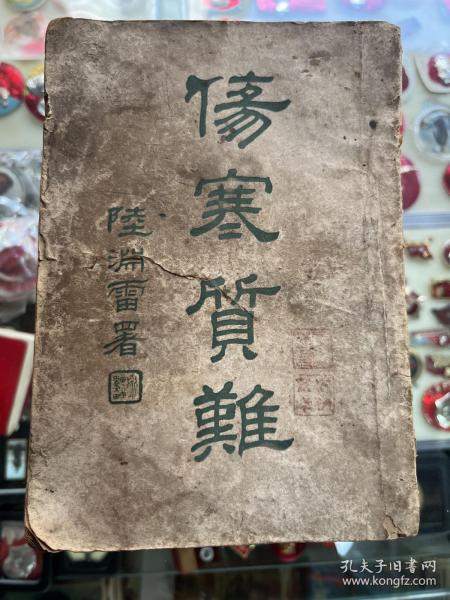 傷寒質難
陸淵雷署
孔夫子旧书网
www.kongfz.com